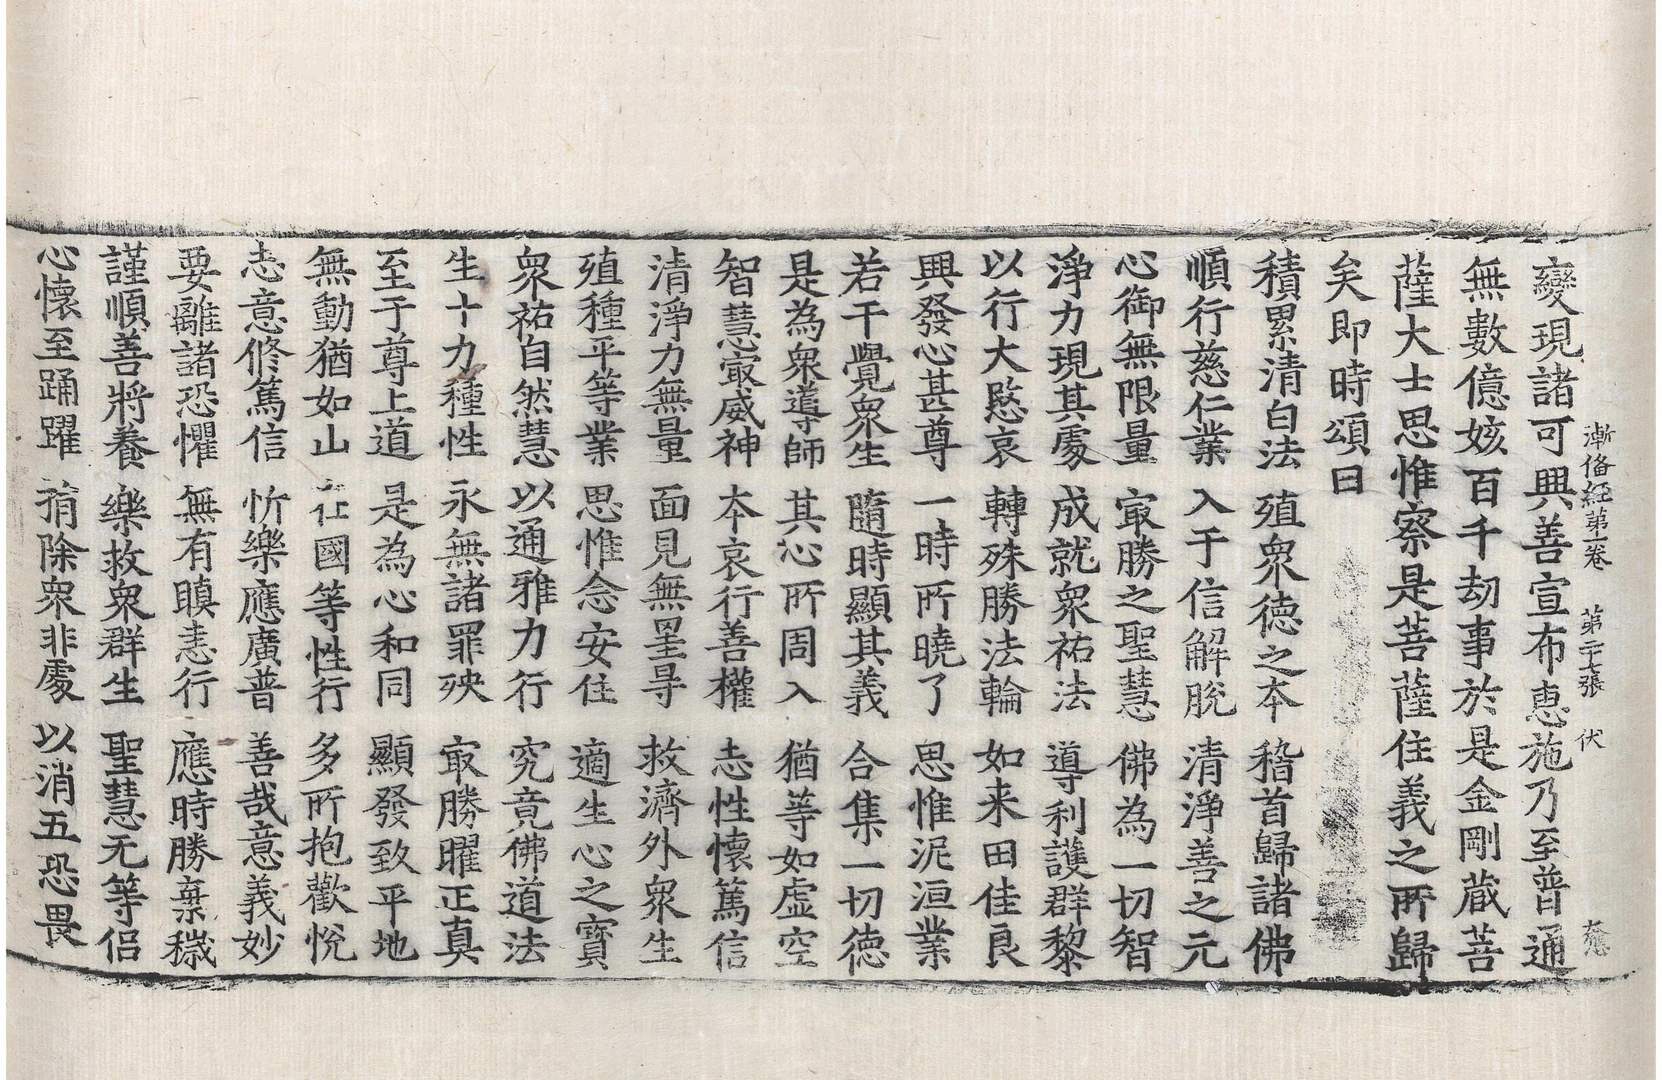 漸俻經第一卷　第二十七張　伏
變現諸可興善宣布惠施乃至普通
無數億姟百千劫事於是金剛蔵菩
薩大士思惟察是菩薩住義之所歸
矣即時頌曰
積累清白法　殖衆德之本　稽首歸諸佛
順行慈仁業　入于信解脫　清淨善之元
心御無限量　冣勝之聖慧　佛為一切智
淨力現其處　成就衆祐法　導利護群黎
以行大愍哀　轉殊勝法輪　如来田佳良
興發心甚尊　一時所曉了　思惟泥洹業
若干覺衆生　隨時顯其義　合集一切德
是為衆導師　其心所周入　猶等如虛空
智慧冣威神　本哀行善權　志性懷篤信
清淨力無量　面見無罣㝵　救濟外衆生
殖種平等業　思惟念安住　適生心之寳
衆祐自然慧　以通雅力行　究竟佛道法
生十力種性　永無諸罪殃　冣勝曜正真
至于尊上道　是為心和同　顯發致平地
無動猶如山　在國等性行　多所抱歡悅
志意修篤信　忻樂應廣普　善哉意義妙
要離諸恐懼　無有瞋恚行　應時勝棄穢
謹順善將養　樂救衆群生　聖慧无等侶
心懷至踊躍　蠲除衆非處　以消五恐畏